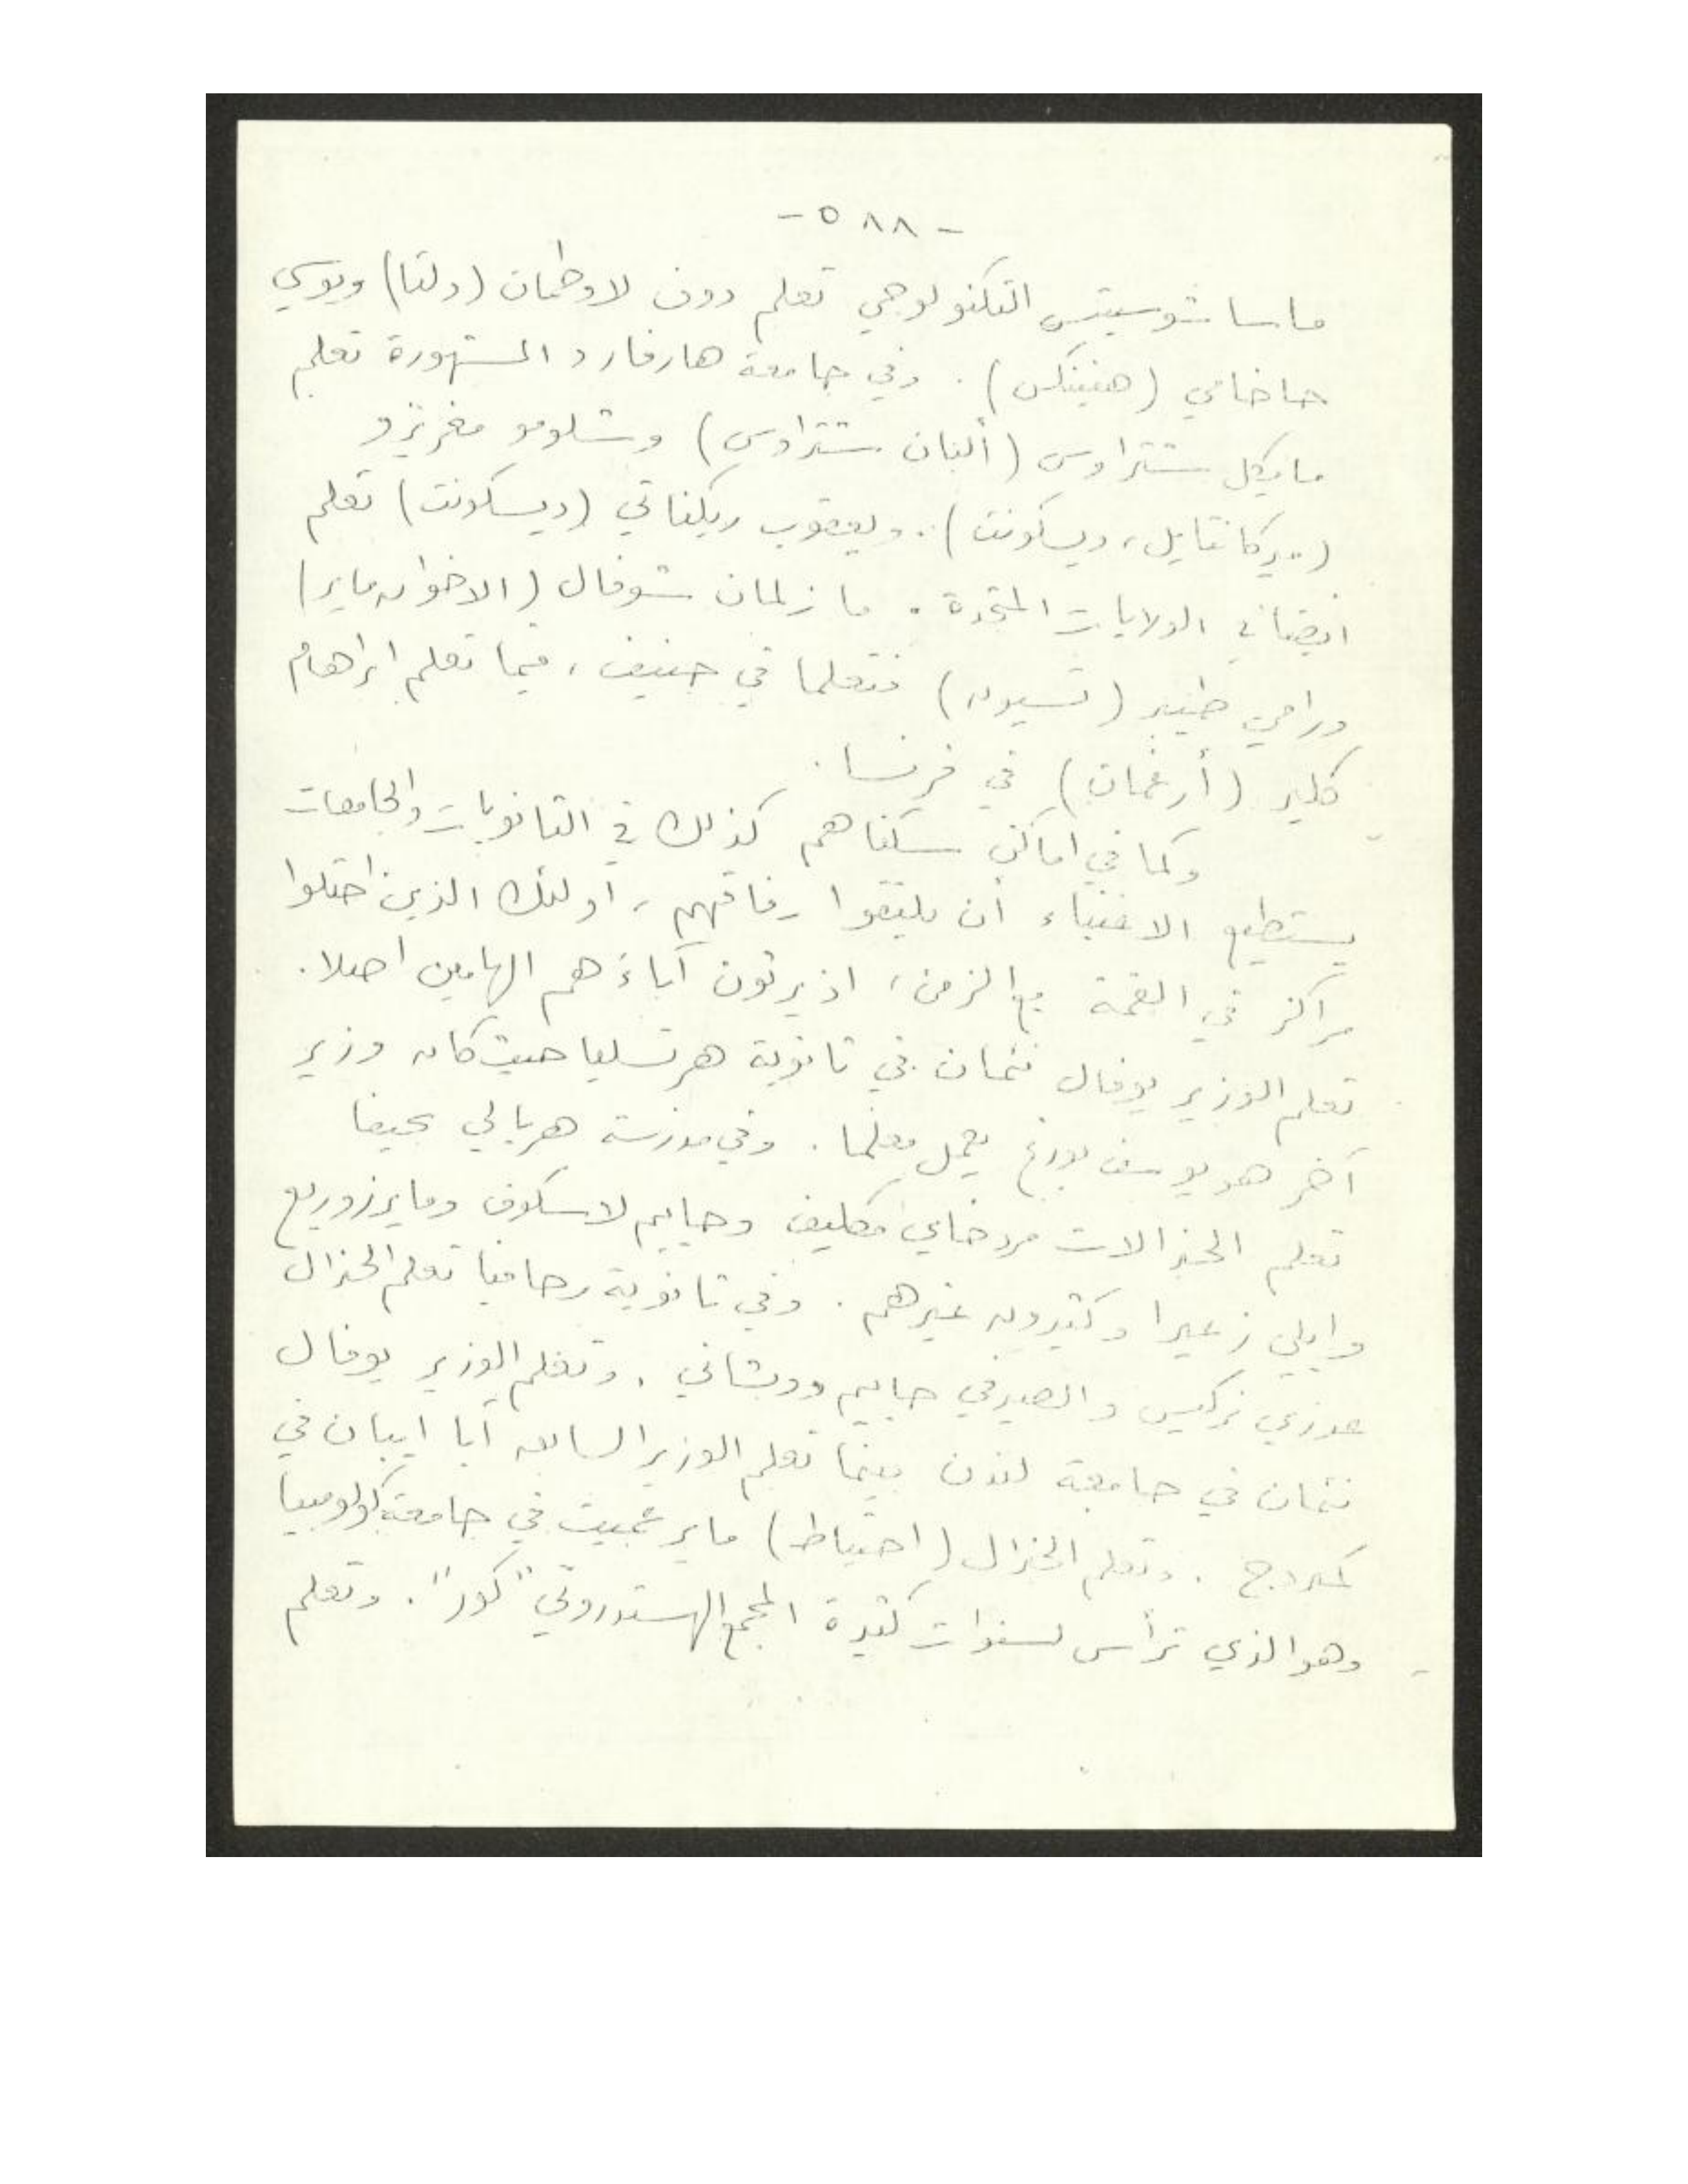 - ٥٨٨ -
ماساتشوسيتس التكنولوجي تعلم دوف لاوطمان (دلتا) ويوسي
حاخامي (هنينكس). وفي جامعة هارفارد المشهورة تعلم
مايكل شتراوس (ألبان شتراوس) وشلومو مغريزو
(ميركانتايل، ديسكونت). ويعقوب ريكناتي (ديسكونت) تعلم
ايضا في الولايات المتحدة. ما زلمان شوفال (الاخوان ماير)
ورامي طيبر (تسيون) فتعلما في جنيف، فيما تعلم ابراهام
كلير (أرغمان) في فرنسا.
وكما في اماكن سكناهم كذلك في الثانويات والجامعات
يستطيع الاغنياء أن يلتقوا رفاقهم، أولئك الذين احتلوا
مراكز في القمة مع الزمن، اذ يرثون آباءهم الهامين اصلا.
تعلم الوزير يوفال نئمان في ثانوية هرتسليا حيث كان وزير
آخر هو يوسف بورغ يعمل معلما. وفي مدرسة هريالي بحيفا
تعلم الجنرالات مردخاي مكليف وحاييم لاسكوف ومايرزوريع
وايلي زعيرا وكثيرون غيرهم. وفي ثانوية رحافيا تعلم الجنرال
عوزي نركيس والصيرفي حاييم دوبشاني. وتعلم الوزير يوفال
نئمان في جامعة لندن بينما تعلم الوزير السابق آبا ايبان في
كمبردج. وتعلم الجنرال (احتياط) ماير عميت في جامعة كولومبيا
وهو الذي ترأس لسنوات كثيرة المجمع الهستدروتي "كور". وتعلم